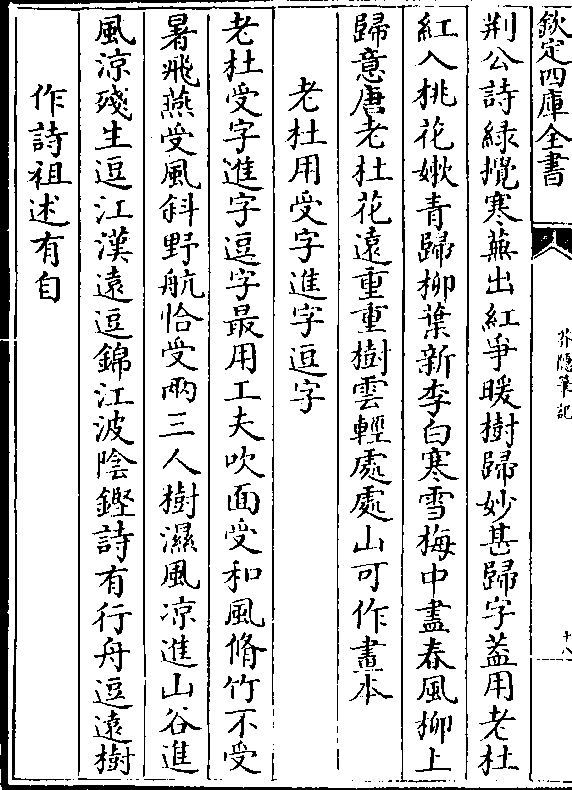 欽定四庫全書
芥隱筆記
十八
荆公詩緑攪寒蕪出紅爭暖樹歸妙甚歸字葢用老杜
紅入桃花嫰青歸柳葉新李白寒雪梅中盡春風柳上
歸意唐老杜花遠重重樹雲輕處處山可作畫本
老杜用受字進字逗字
老杜受字進字逗字最用工夫吹面受和風脩竹不受
暑飛燕受風斜野航恰受兩三人樹濕風凉進山谷進
風凉殘生逗江漢遠逗錦江波陰鏗詩有行舟逗遠樹
作詩祖述有自